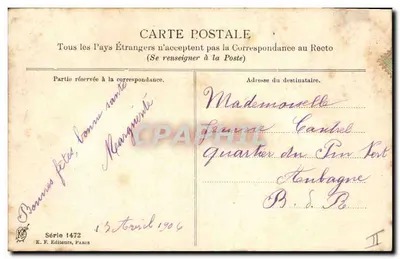 CARTE POSTALE
Tous les Pays Étrangers n'acceptent pas la Correspondance au Recto
(Se renseigner à la Poste)
Partie réservée à la correspondance.
Adresse du destinataire.
Bonnes fêtes, bonne santé
Marguerite
13 Avril 1906
Mademoiselle
Jeanne Cautrel
Quartier du Pin Vert
Aubagne
B. d. R
Série 1472
K. F. Editeurs, PARIS
CPAPHIL
II